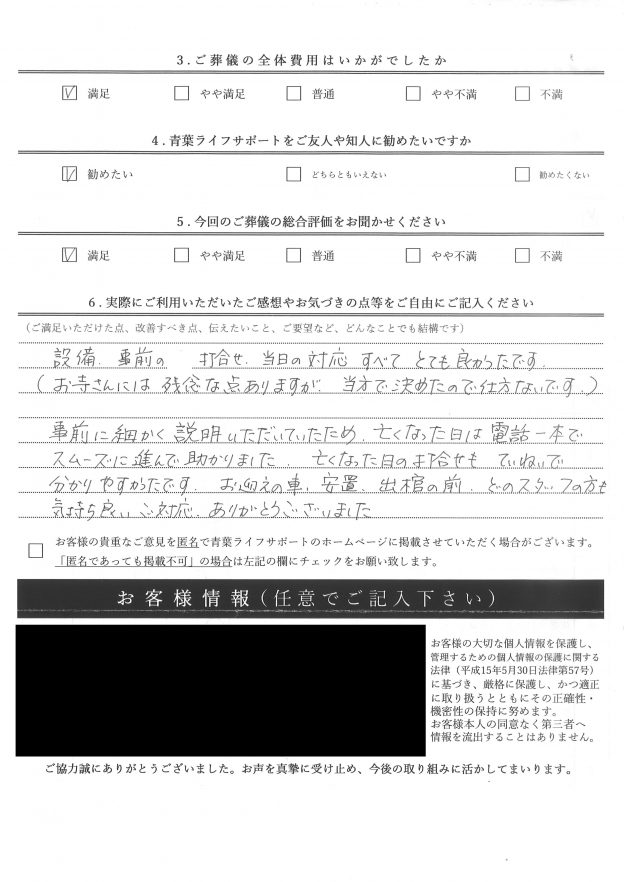 3.ご葬儀の全体費用はいかがでしたか
満足 やや満足 普通 やや不満 不満
4.青葉ライフサポートをご友人や知人に勧めたいですか
勧めたい どちらともいえない 勧めたくない
5.今回のご葬儀の総合評価をお聞かせください
満足 やや満足 普通 やや不満 不満
6.実際にご利用いただいたご感想やお気づきの点等をご自由にご記入ください
(ご満足いただけた点、改善すべき点、伝えたいこと、ご要望など、どんなことでも結構です)
設備、事前の 打合せ、当日の対応 すべて とても良かったです.
(お寺さんには 残念な点ありますが、当方で決めたので仕方ないです.)
事前に細かく説明いただいていたため、亡くなった日は電話一本で
スムーズに進んで助かりました. 亡くなった日の打合せも ていねいで
分かりやすかったです. お迎えの車、安置、出棺の前、どのスタッフの方も
気持ち良いご対応、ありがとうございました
お客様の貴重なご意見を匿名で青葉ライフサポートのホームページに掲載させていただく場合がございます。
「匿名であっても掲載不可」の場合は左記の欄にチェックをお願い致します。
お客様情報(任意でご記入下さい)
お客様の大切な個人情報を保護し、
管理するための個人情報の保護に関する
法律(平成15年5月30日法律第57号)
に基づき、厳格に保護し、かつ適正
に取り扱うとともにその正確性・
機密性の保持に努めます。
お客様本人の同意なく第三者へ
情報を流出することはありません。
ご協力誠にありがとうございました。お声を真摯に受け止め、今後の取り組みに活かしてまいります。